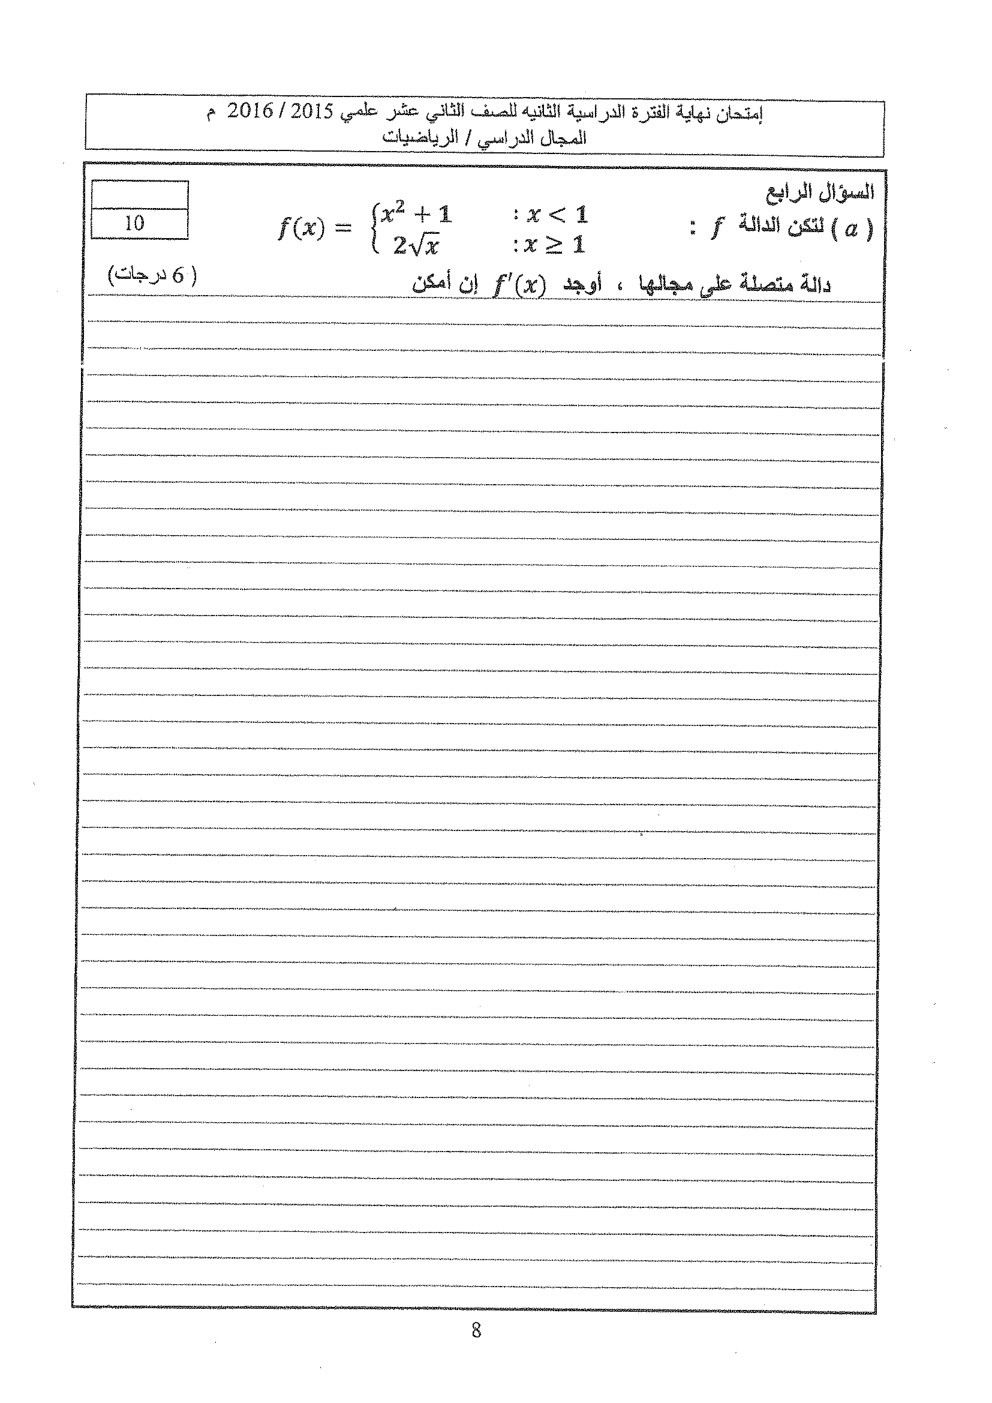 إمتحان نهاية الفترة الدراسية الثانيه للصف الثاني عشر علمي 2015 / 2016 م
المجال الدراسي / الرياضيات
السؤال الرابع
10
( a ) لتكن الدالة f : f(x) = { x² + 1 : x < 1
2√x : x ≥ 1
دالة متصلة على مجالها ، أوجد f′(x) إن أمكن
( 6 درجات)
8